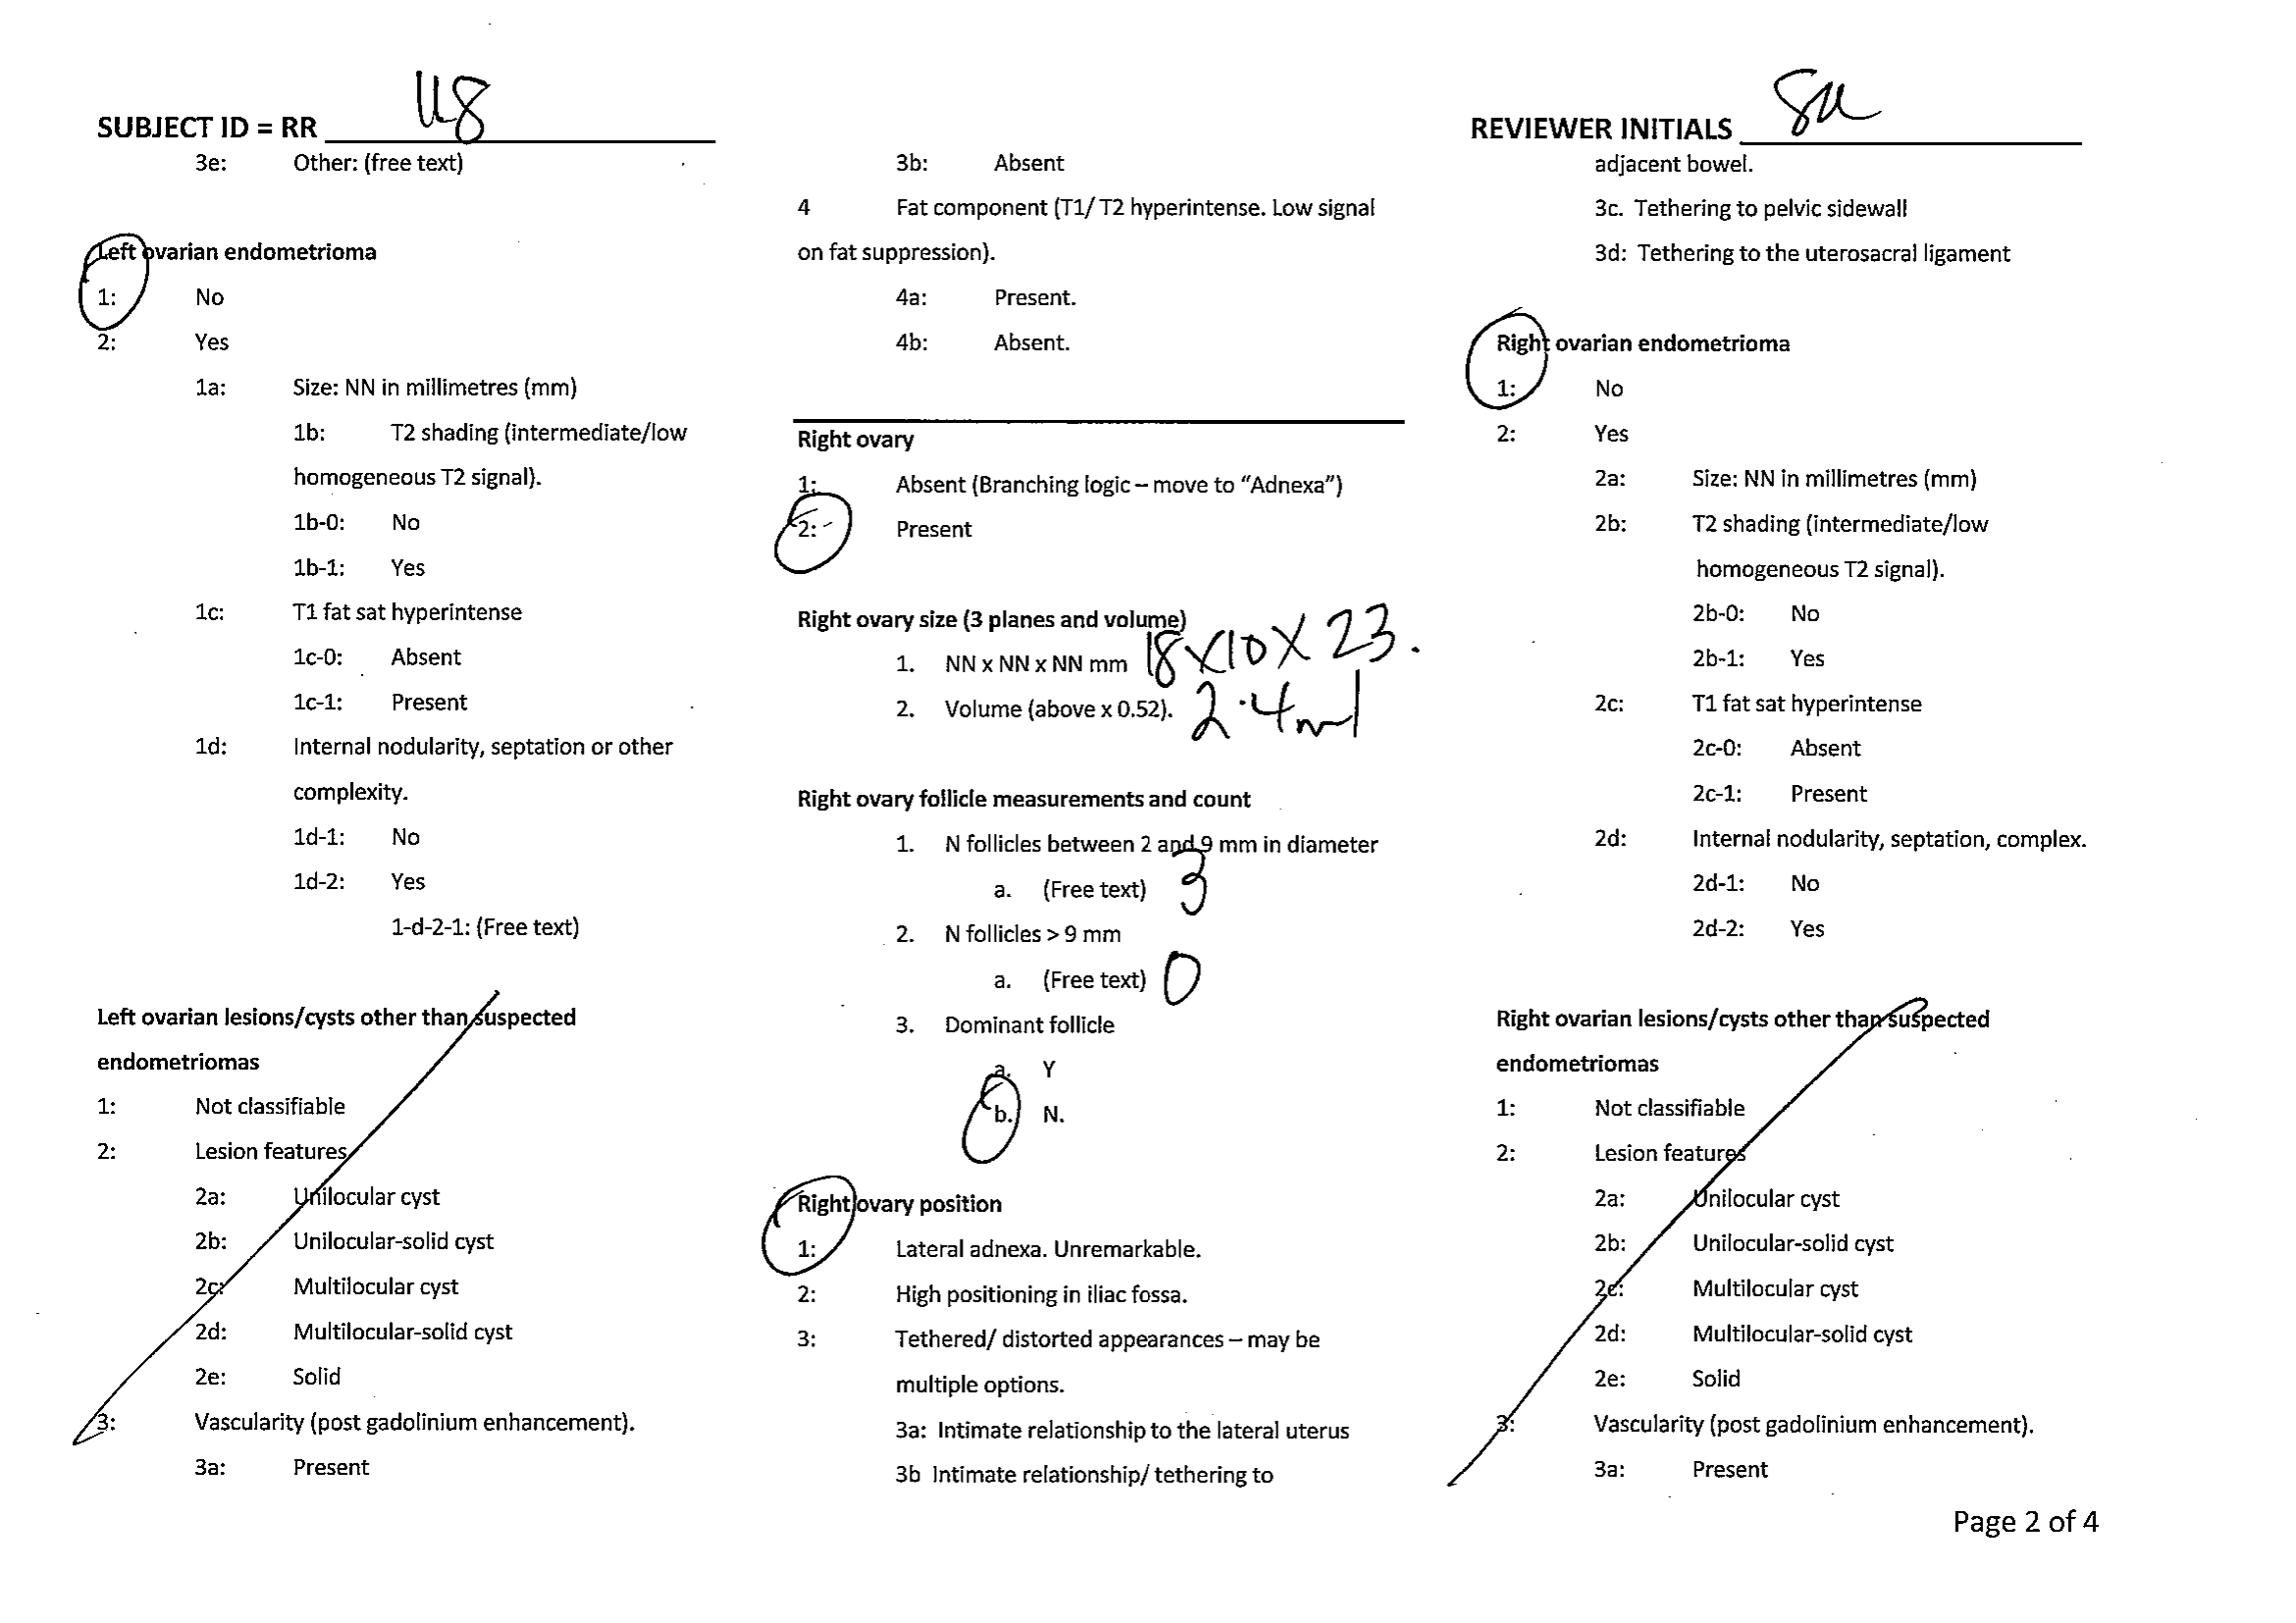 SUBJECT ID = RR 118
3e: Other: (free text)
Left ovarian endometrioma
1: No
2: Yes
1a: Size: NN in millimetres (mm)
1b: T2 shading (intermediate/low
homogeneous T2 signal).
1b-0: No
1b-1: Yes
1c: T1 fat sat hyperintense
1c-0: Absent
1c-1: Present
1d: Internal nodularity, septation or other
complexity.
1d-1: No
1d-2: Yes
1-d-2-1: (Free text)
Left ovarian lesions/cysts other than suspected
endometriomas
1: Not classifiable
2: Lesion features
2a: Unilocular cyst
2b: Unilocular-solid cyst
2c: Multilocular cyst
2d: Multilocular-solid cyst
2e: Solid
3: Vascularity (post gadolinium enhancement).
3a: Present
3b: Absent
4 Fat component (T1/ T2 hyperintense. Low signal
on fat suppression).
4a: Present.
4b: Absent.
Right ovary
1: Absent (Branching logic – move to “Adnexa”)
2: Present
Right ovary size (3 planes and volume)
1. NN x NN x NN mm 18 X 10 X 23.
2. Volume (above x 0.52). 2.4ml
Right ovary follicle measurements and count
1. N follicles between 2 and 9 mm in diameter
a. (Free text) 3
2. N follicles > 9 mm
a. (Free text) 0
3. Dominant follicle
a. Y
b. N.
Right ovary position
1: Lateral adnexa. Unremarkable.
2: High positioning in iliac fossa.
3: Tethered/ distorted appearances – may be
multiple options.
3a: Intimate relationship to the lateral uterus
3b Intimate relationship/ tethering to
REVIEWER INITIALS
adjacent bowel.
3c. Tethering to pelvic sidewall
3d: Tethering to the uterosacral ligament
Right ovarian endometrioma
1: No
2: Yes
2a: Size: NN in millimetres (mm)
2b: T2 shading (intermediate/low
homogeneous T2 signal).
2b-0: No
2b-1: Yes
2c: T1 fat sat hyperintense
2c-0: Absent
2c-1: Present
2d: Internal nodularity, septation, complex.
2d-1: No
2d-2: Yes
Right ovarian lesions/cysts other than suspected
endometriomas
1: Not classifiable
2: Lesion features
2a: Unilocular cyst
2b: Unilocular-solid cyst
2c: Multilocular cyst
2d: Multilocular-solid cyst
2e: Solid
3: Vascularity (post gadolinium enhancement).
3a: Present
Page 2 of 4